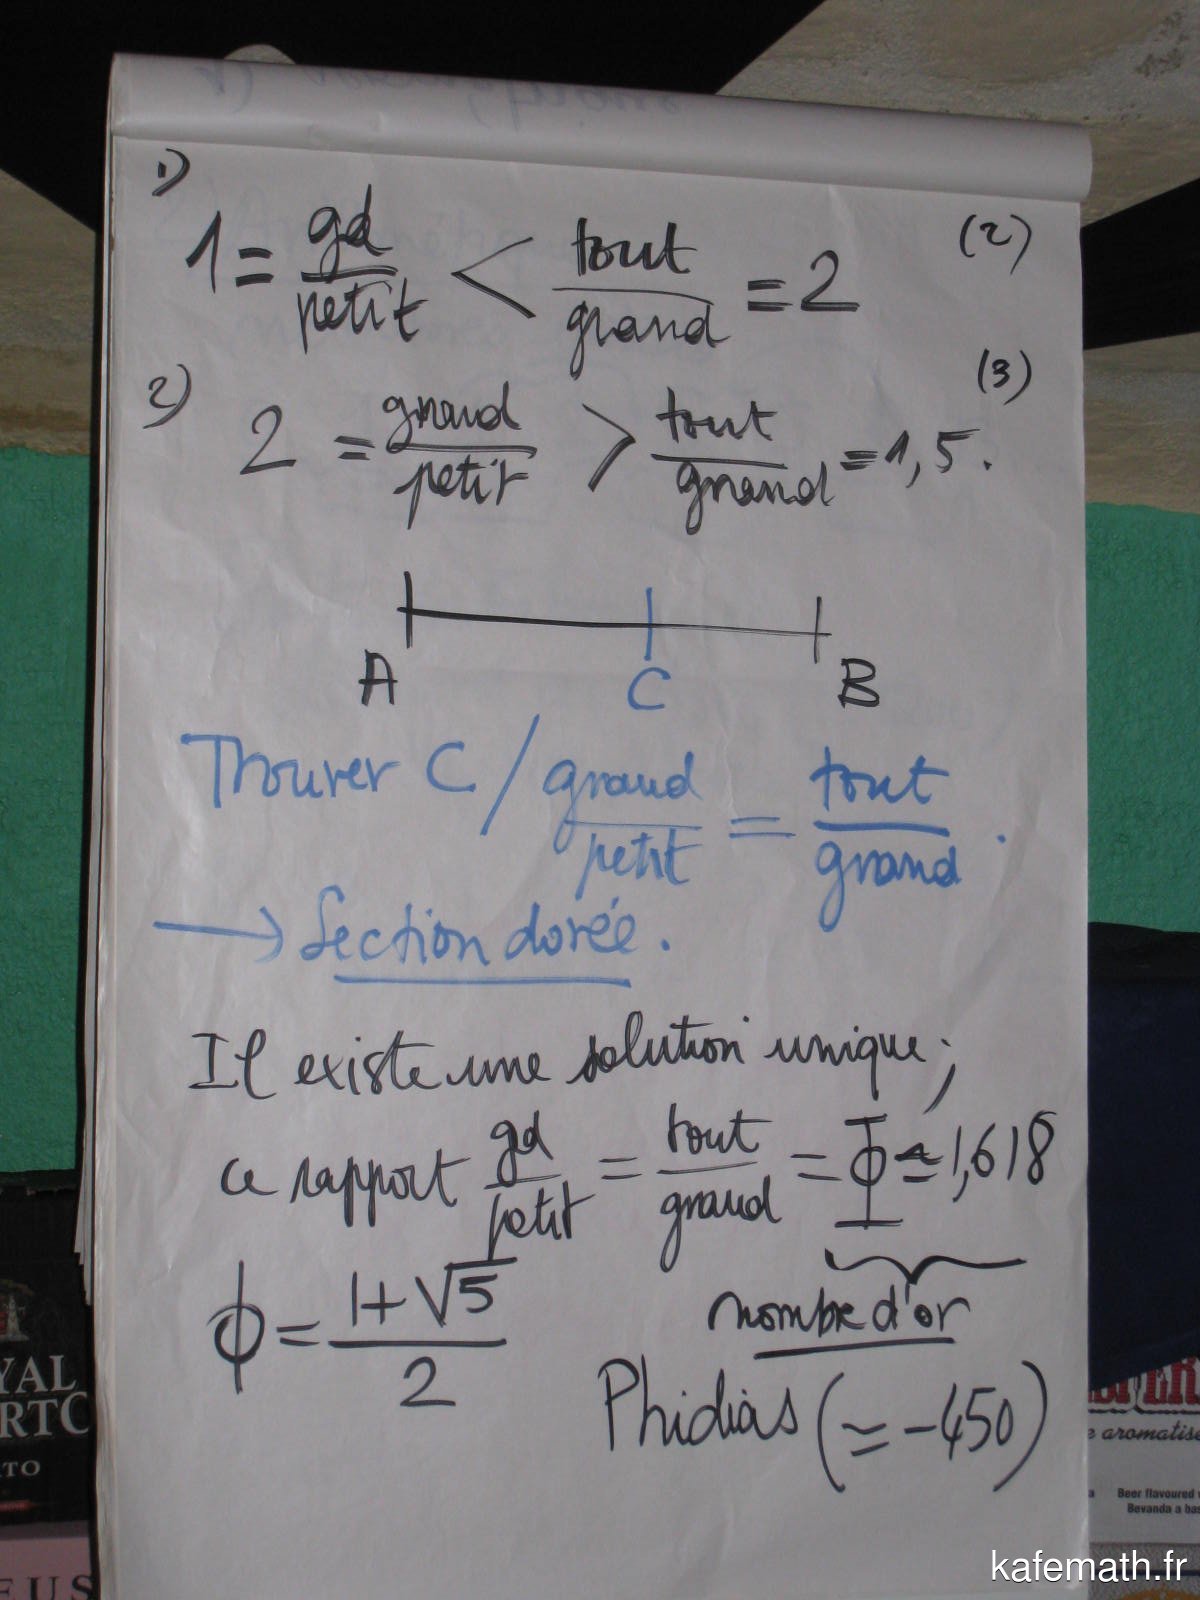 1)
1 = gd/petit < tout/grand = 2 (2)
2) 2 = grand/petit > tout/grand = 1,5. (3)
A C B
Trouver C / grand/petit = tout/grand.
→ Section dorée.
Il existe une solution unique;
ce rapport gd/petit = tout/grand = Φ ≃ 1,618
ϕ = (1+√5)/2
nombre d'or
Phidias (≃ -450)
YAL
RTO
TO
EUS
e aromatise
Beer flavoured
Bevanda a bas
kafemath.fr